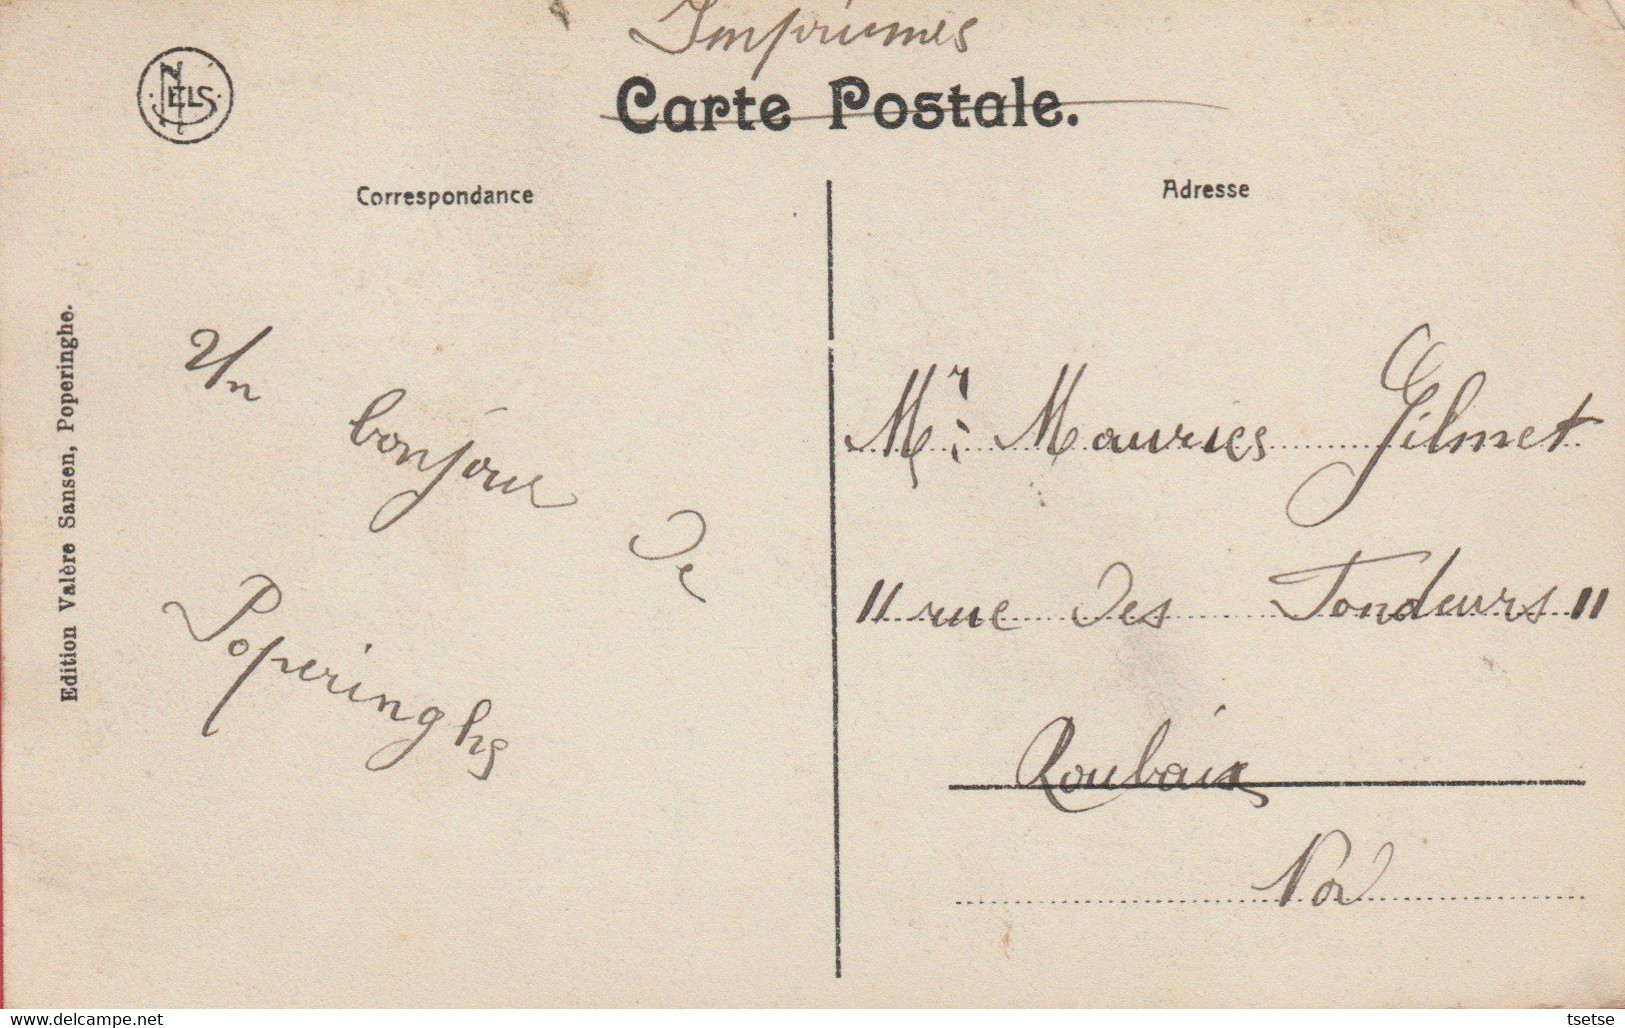 Imprimés
Carte Postale.
NELS
Correspondance
Adresse
Edition Valère Sansen, Poperinghe.
Un
bonjour
de
Poperinghe
Mr. Mauries Gilmet
11 rue des Tondeurs 11
Roubaix
Nord
www.delcampe.net
tsetse